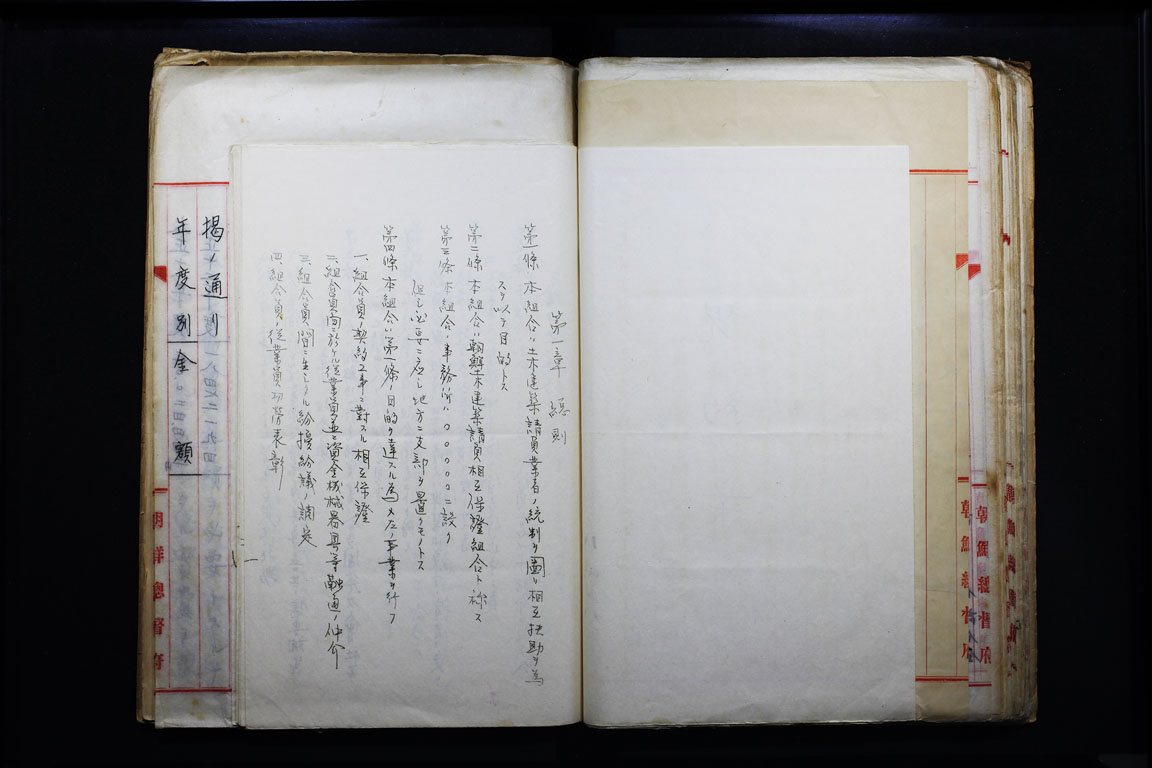 朝鮮總督府
朝鮮總督府
第一章 總則
第一條 本組合ハ土木建築請負業者ノ統制ヲ圖リ相互扶助ヲ為
スヲ以テ目的トス
第二條 本組合ハ朝鮮土木建築請負相互保證組合ト称ス
第三條 本組合ノ事務所ハ〇〇〇〇〇ニ設ク
但シ必要ニ応シ地方ニ支部ヲ置クモノトス
第四條 本組合ハ第一條ノ目的ヲ達スル為メ左ノ事業ヲ行フ
一、組合員ノ契約工事ニ對スル相互保證
二、組合員間ニ於ケル從業員並ニ資金機械器具等融通ノ仲介
三、組合員間ニ生シタル紛擾紛議ノ調定
四、組合員ノ從業員功労表彰
揭ノ通リ
年度別金額
朝鮮總督府